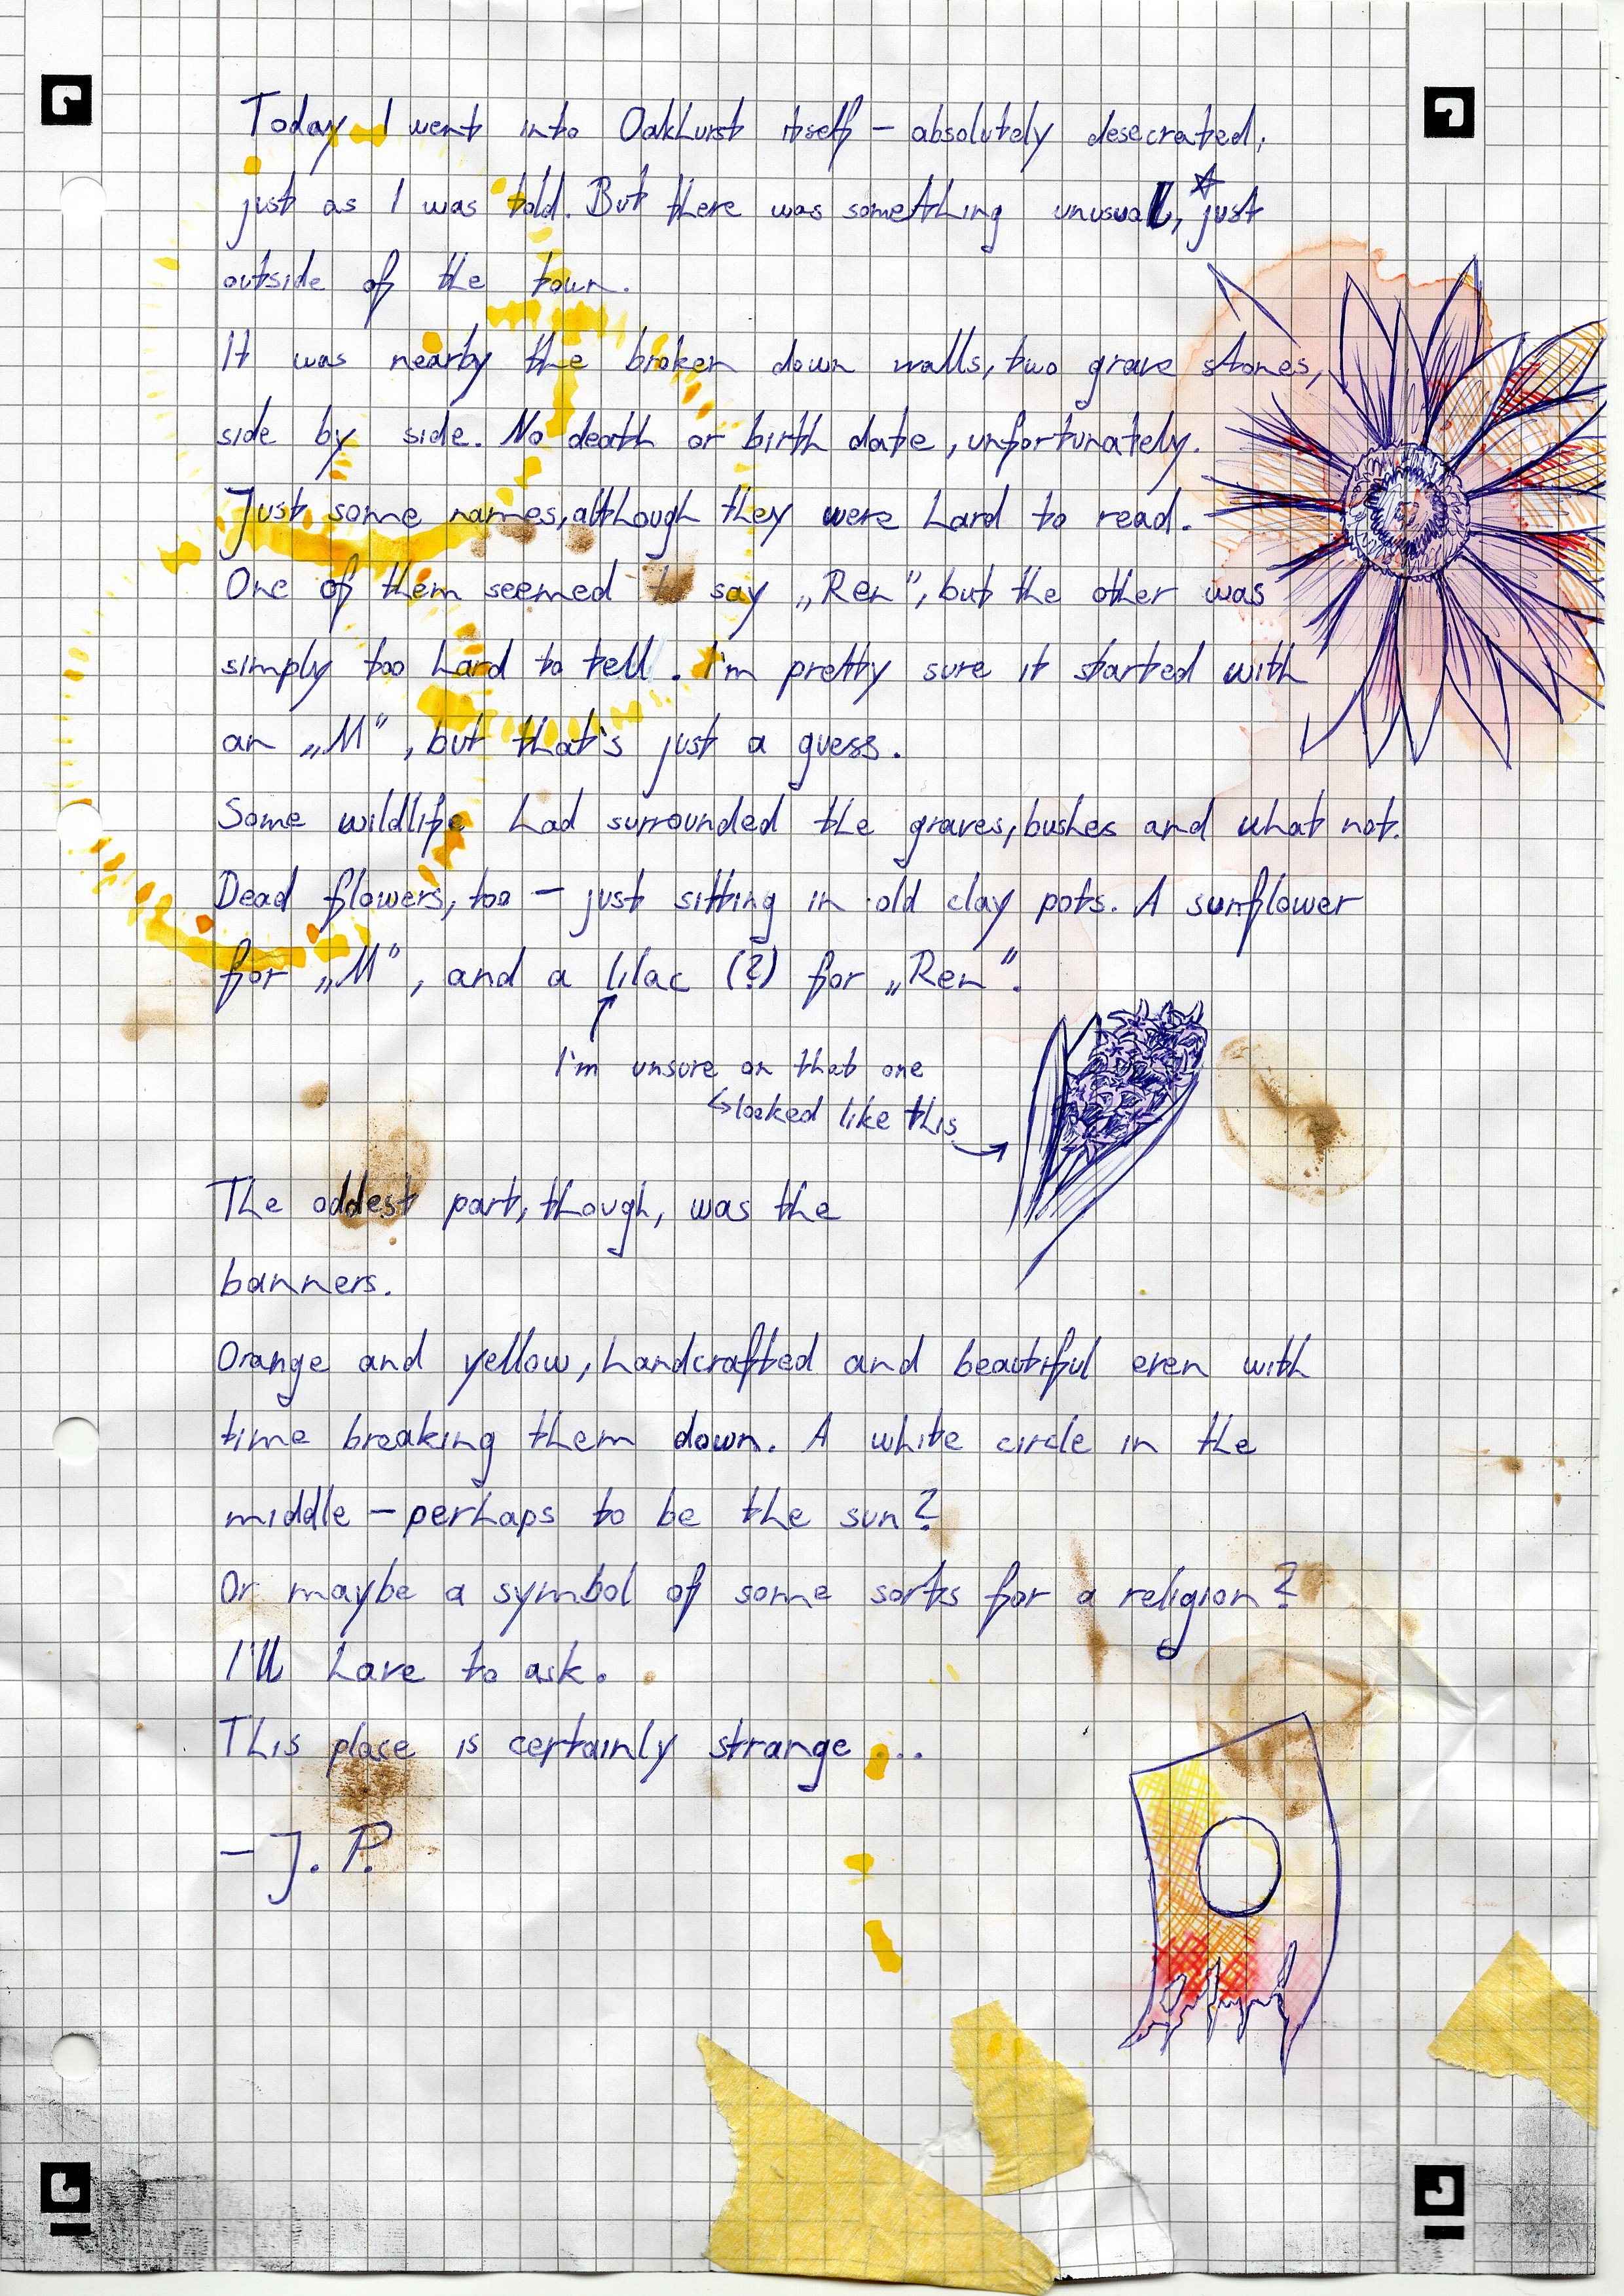 Today I went into Oakhurst itself – absolutely desecrated,
just as I was told. But there was something unusual, just
outside of the town.
It was nearby the broken down walls, two grave stones,
side by side. No death or birth date, unfortunately.
Just some names, although they were hard to read.
One of them seemed to say „Ren", but the other was
simply too hard to tell. I'm pretty sure it started with
an „M", but that's just a guess.
Some wildlife had surrounded the graves, bushes and what not.
Dead flowers, too – just sitting in old clay pots. A sunflower
for „M", and a lilac (?) for „Ren".
I'm unsure on that one
↳looked like this
The oddest part, though, was the
banners.
Orange and yellow, handcrafted and beautiful even with
time breaking them down. A white circle in the
middle – perhaps to be the sun?
Or maybe a symbol of some sorts for a religion?
I'll have to ask.
This place is certainly strange...
– J. P.